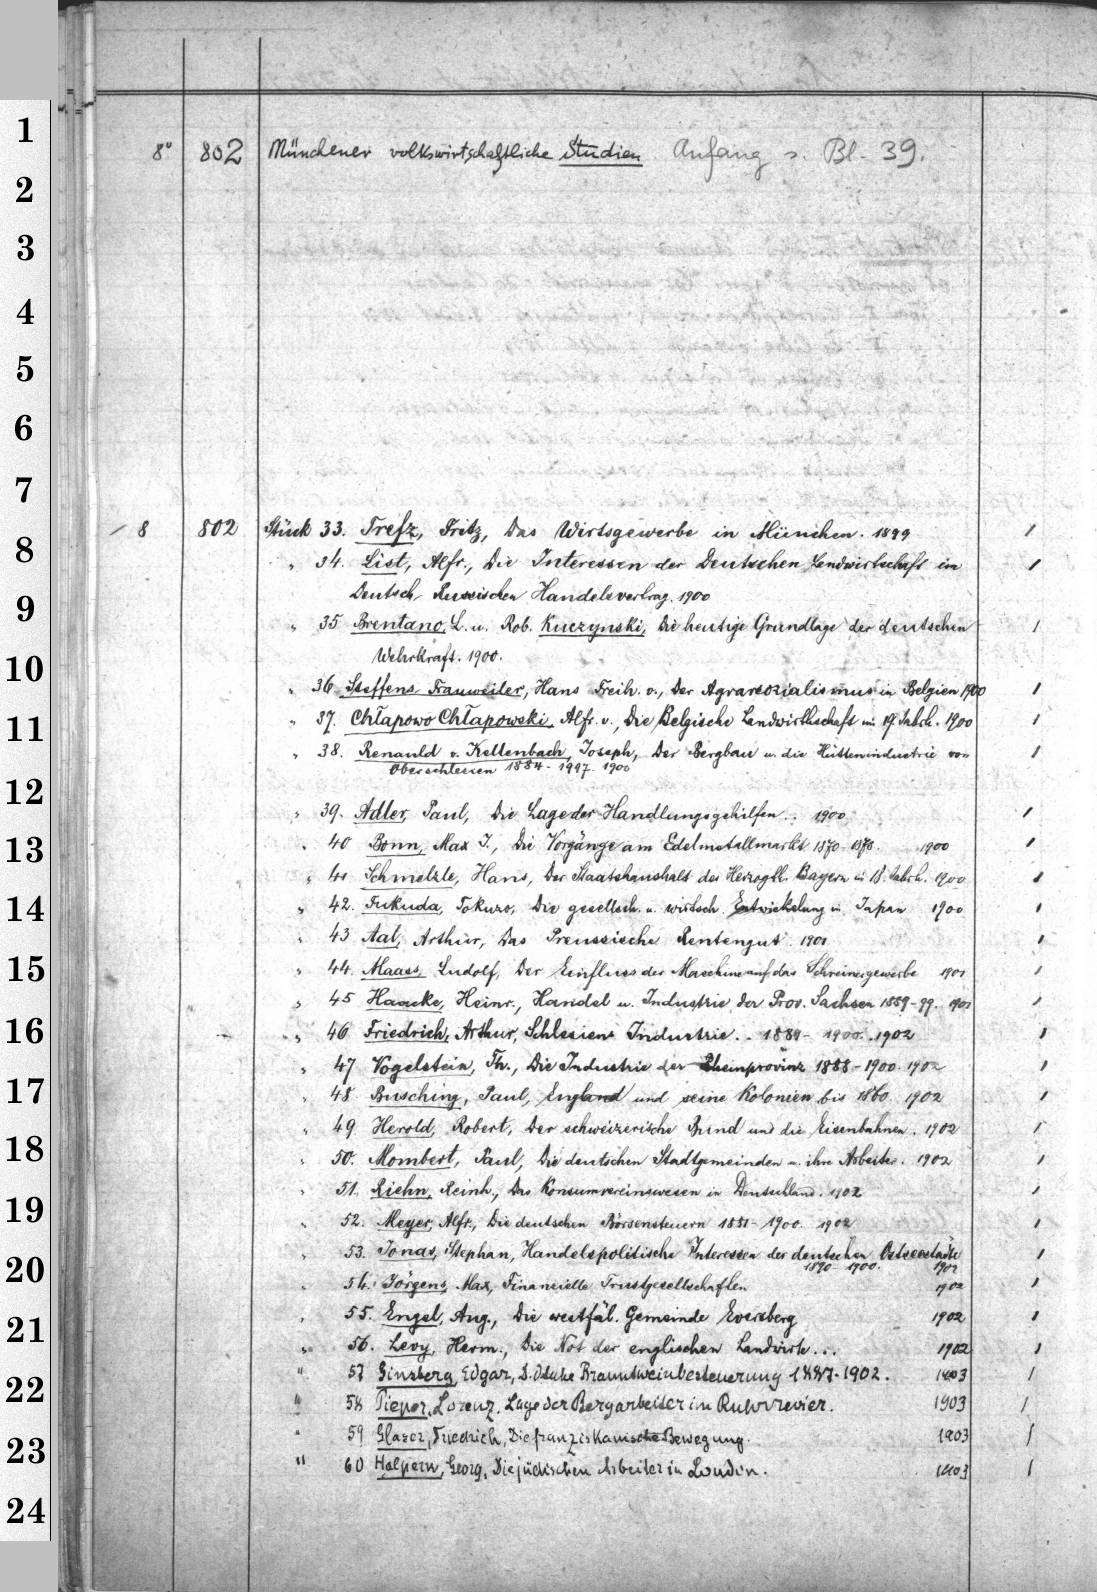 1
2
3
4
5
6
7
8
9
10
11
12
13
14
15
16
17
18
19
20
21
22
23
24
8° 802 Münchener volkswirtschaftliche Studien Anfang s. Bl. 39.
8 802 Stück 33. Trefz, Fritz, Das Wirtsgewerbe in München. 1899
" 34. List, Alfr., Die Interessen der Deutschen Landwirtschaft im
Deutsch-Russischen Handelsvertrag. 1900
" 35 Brentano, L. u. Rob. Kuczynski, Die heutige Grundlage der deutschen
Wehrkraft. 1900.
" 36 Steffens-Frauweiler, Hans Freih. v., Der Agrarsozialismus in Belgien 1900
" 37. Chłapowo Chłapowski, Alfr. v., Die Belgische Landwirthschaft im 19. Jahrh. 1900
" 38. Renauld v. Kellenbach, Joseph, Der Bergbau u. die Hüttenindustrie von
Oberschlesien 1884-1897. 1900
" 39. Adler, Paul, Die Lage der Handlungsgehilfen.. 1900
" 40 Bonn, Max J., Die Vorgänge am Edelmetallmarkt 1870-1873. 1900
" 41 Schmelzle, Hans, Der Staatshaushalt des Herzogth. Bayern in 18. Jahrh. 1900
" 42. Fukuda, Tokuzo, Die gesellsch. u. wirtsch. Entwickelung in Japan 1900
" 43 Aal, Arthur, Das Preussische Rentengut. 1901
" 44. Maass, Ludolf, Der Einfluss der Maschine auf das Schreinergewerbe 1901
" 45 Haacke, Heinr., Handel u. Industrie der Prov. Sachsen 1889-99. 1901
" 46 Friedrich, Arthur, Schlesiens Industrie.. 1889-1900. 1902
" 47 Vogelstein, Th., Die Industrie der Rheinprovinz 1888-1900. 1902
" 48 Busching, Paul, England und seine Kolonien bis 1860. 1902
" 49 Herold, Robert, Der schweizerische Bund und die Eisenbahnen. 1902
" 50. Mombert, Paul, Die deutschen Stadtgemeinden u. ihre Arbeiter. 1902
" 51. Riehn, Reinh., Das Konsumvereinswesen in Deutschland. 1902
" 52. Meyer, Alfr., Die deutschen Börsensteuern 1881-1900. 1902
" 53. Jonas, Stephan, Handelspolitische Interessen der deutschen Ostseestädte
1890-1900. 1902
" 54. Jörgens, Max, Finanzielle Trustgesellschaften 1902
" 55. Engel, Aug., Die westfäl. Gemeinde Eversberg 1902
" 56. Levy, Herm., Die Not der englischen Landwirte... 1902
" 57 Ginsberg, Edgar, D. Dtsche Branntweinbesteuerung 1887-1902. 1903
" 58 Pieper, Lorenz. Lage der Bergarbeiter im Ruhrrevier. 1903
" 59 Glaser, Friedrich, Die franziskanische Bewegung. 1903
" 60 Halpern, Georg, Die jüdischen Arbeiter in London. 1903